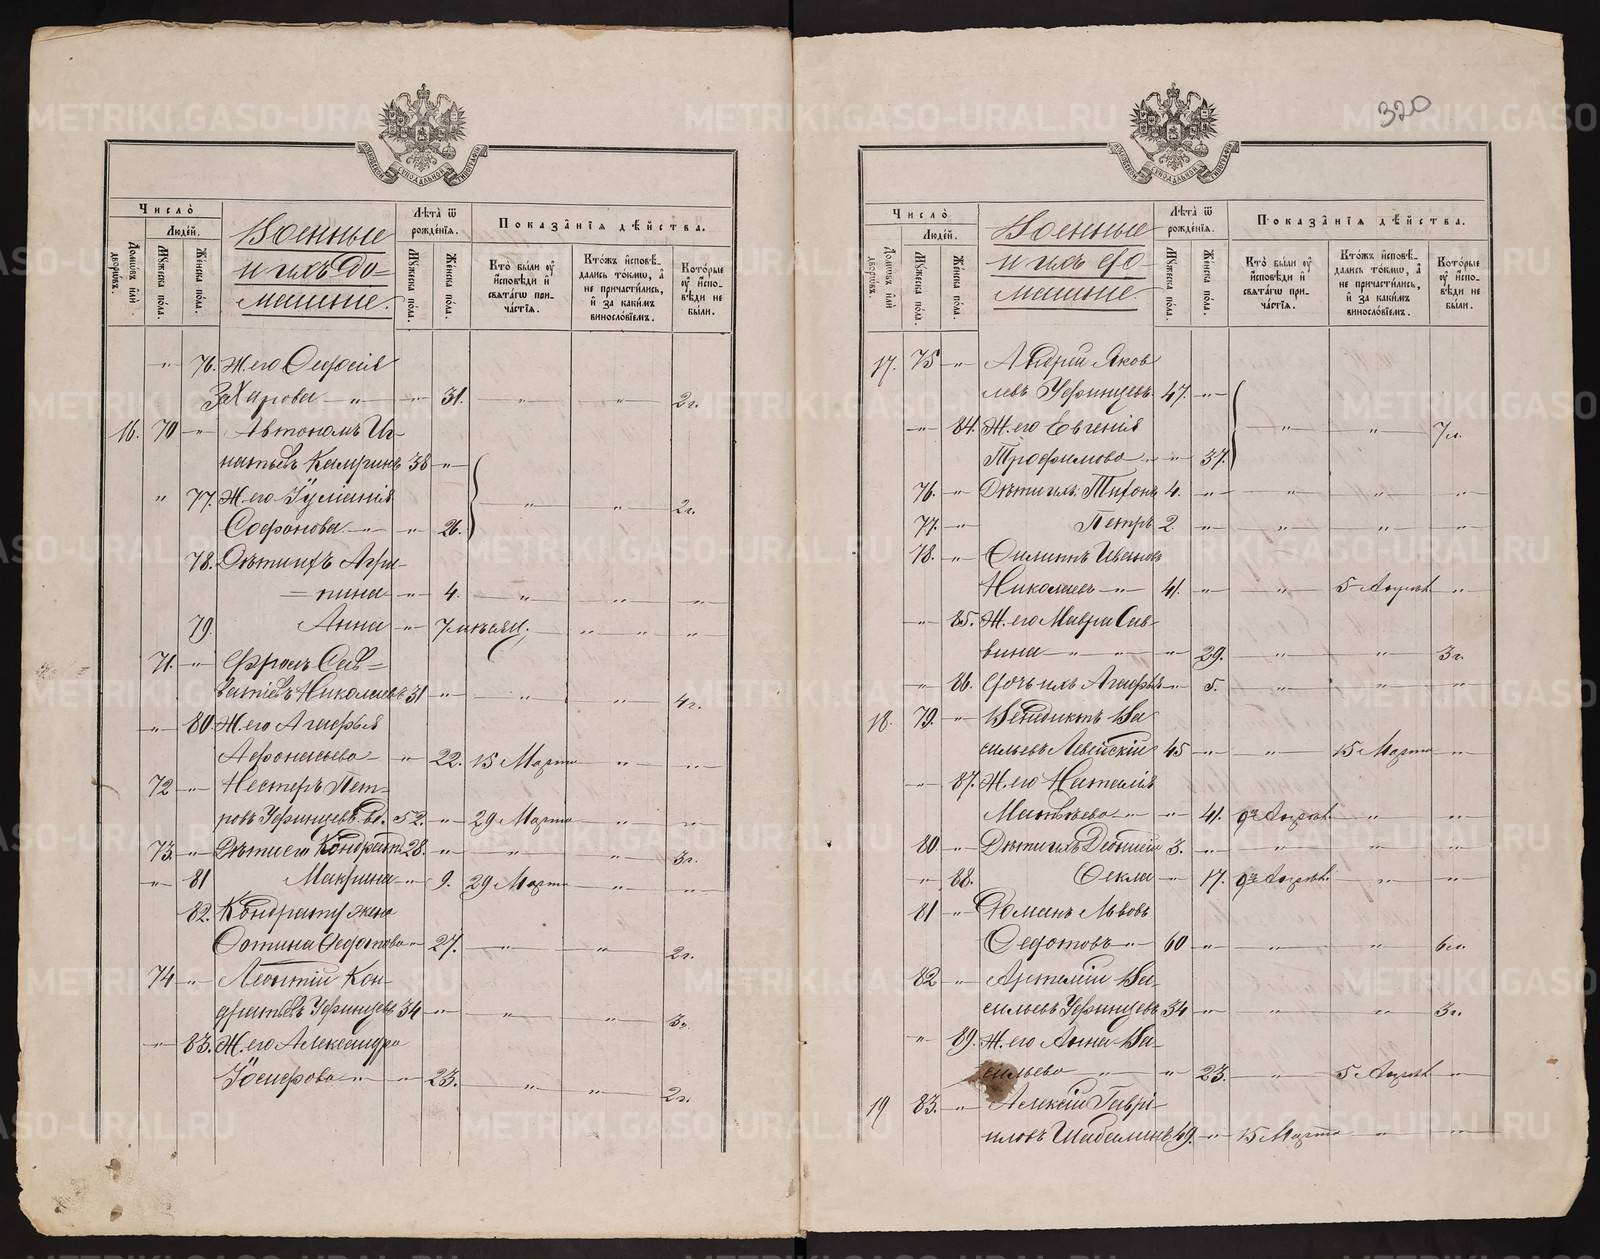 320
Число̀
Люде́й.
Домѡ́въ и҆лѝ дворѡ́въ.
Мꙋ́жеска по́ла.
Же́нска по́ла.
Военные
и ихъ до-
машние.
Лѣ́та ѿ рожде́нїя.
Мꙋ́жеска по́ла.
Же́нска по́ла.
Показа̑нїѧ дѣ́йства.
Кто̀ бы́ли ᲂу҆ и҆сповѣ́ди и҆ свѧта́гѡ прича́стїѧ.
Кто́жъ и҆сповѣ́дались то́кмѡ, а҆ не причасти́лись, и҆ за каки́мъ винослові́емъ.
Кото́рые ᲂу҆ и҆сповѣ́ди не бы́ли.
" 76. Ж. его Федосія
Захарова " " 31. " " 2г.
16. 70 " Автономъ Иг-
натьевъ Камринъ 38 "
" 77. Ж. его Іуліанія " " 2г.
Софонова " " 26.
78. Дѣти ихъ Агри-
пина " 4. " " "
79. Анна " 7 мѣсяц. " " "
71. " Фролъ Сав-
ватіевъ Николаевъ 31 " " " 4г.
" 80 Ж. его Агафья
Афонасьева " 22. 15 Марта " "
72 " Несторъ Пет-
ровъ Уфинцевъ вд. 52. " 29 Марта " "
73. " Дѣти его Кондратъ 28. " " " 3г.
" 81 Макрина " 9. 29 Марта " "
82. Кондрату жена
Фотина Федотова " 27. " " 2г.
74 " Леонтій Кон-
дратьевъ Уфинцевъ 34 " " " 3г.
" 83. Ж. его Александра
Іосифова " " 23. " " 2г.
Число̀
Люде́й.
Домѡ́въ и҆лѝ дворѡ́въ.
Мꙋ́жеска по́ла.
Же́нска по́ла.
Военные
и ихъ до-
машние.
Лѣ́та ѿ рожде́нїя.
Мꙋ́жеска по́ла.
Же́нска по́ла.
Показа̑нїѧ дѣ́йства.
Кто̀ бы́ли ᲂу҆ и҆сповѣ́ди и҆ свѧта́гѡ прича́стїѧ.
Кто́жъ и҆сповѣ́дались то́кмѡ, а҆ не причасти́лись, и҆ за каки́мъ винослові́емъ.
Кото́рые ᲂу҆ и҆сповѣ́ди не бы́ли.
17. 75 " Андрей Яков
левъ Уфинцевъ 47. "
" 84. Ж. его Евгенія " " 7л.
Трофимова " " 37.
76. " Дѣти ихъ: Тихонъ 4. " " " "
77. " Петръ 2. " " " "
78. " Филипъ Ивановъ
Николаевъ " 41. " " 5 Апрѣля "
" 85. Ж. его Мавра Сав-
вина " " " 29. " " 3г.
" 86. Дочь ихъ Агафья " 5. " " "
18. 79. " Венедиктъ Ва
сильевъ Левейскій 45 " " 15 Марта "
" 87. Ж. его Наталія
Матвѣева " " 41. 9 Апрѣля " "
80 " Дѣти ихъ Леонтій 3. " " " "
" 88. Фекла " 17. 9 Апрѣля " "
81 " Романъ Львовъ
Федотовъ " 60 " " " 6л.
82 " Артемій Ва-
сильевъ Уфинцевъ 34 " " " 3г.
" 89. Ж. его Анна Ва-
сильева " " 23. " 5 Апрѣля "
19 83. " Алексій Гаврі-
иловъ Шабалинъ 49. " 15 Марта " "